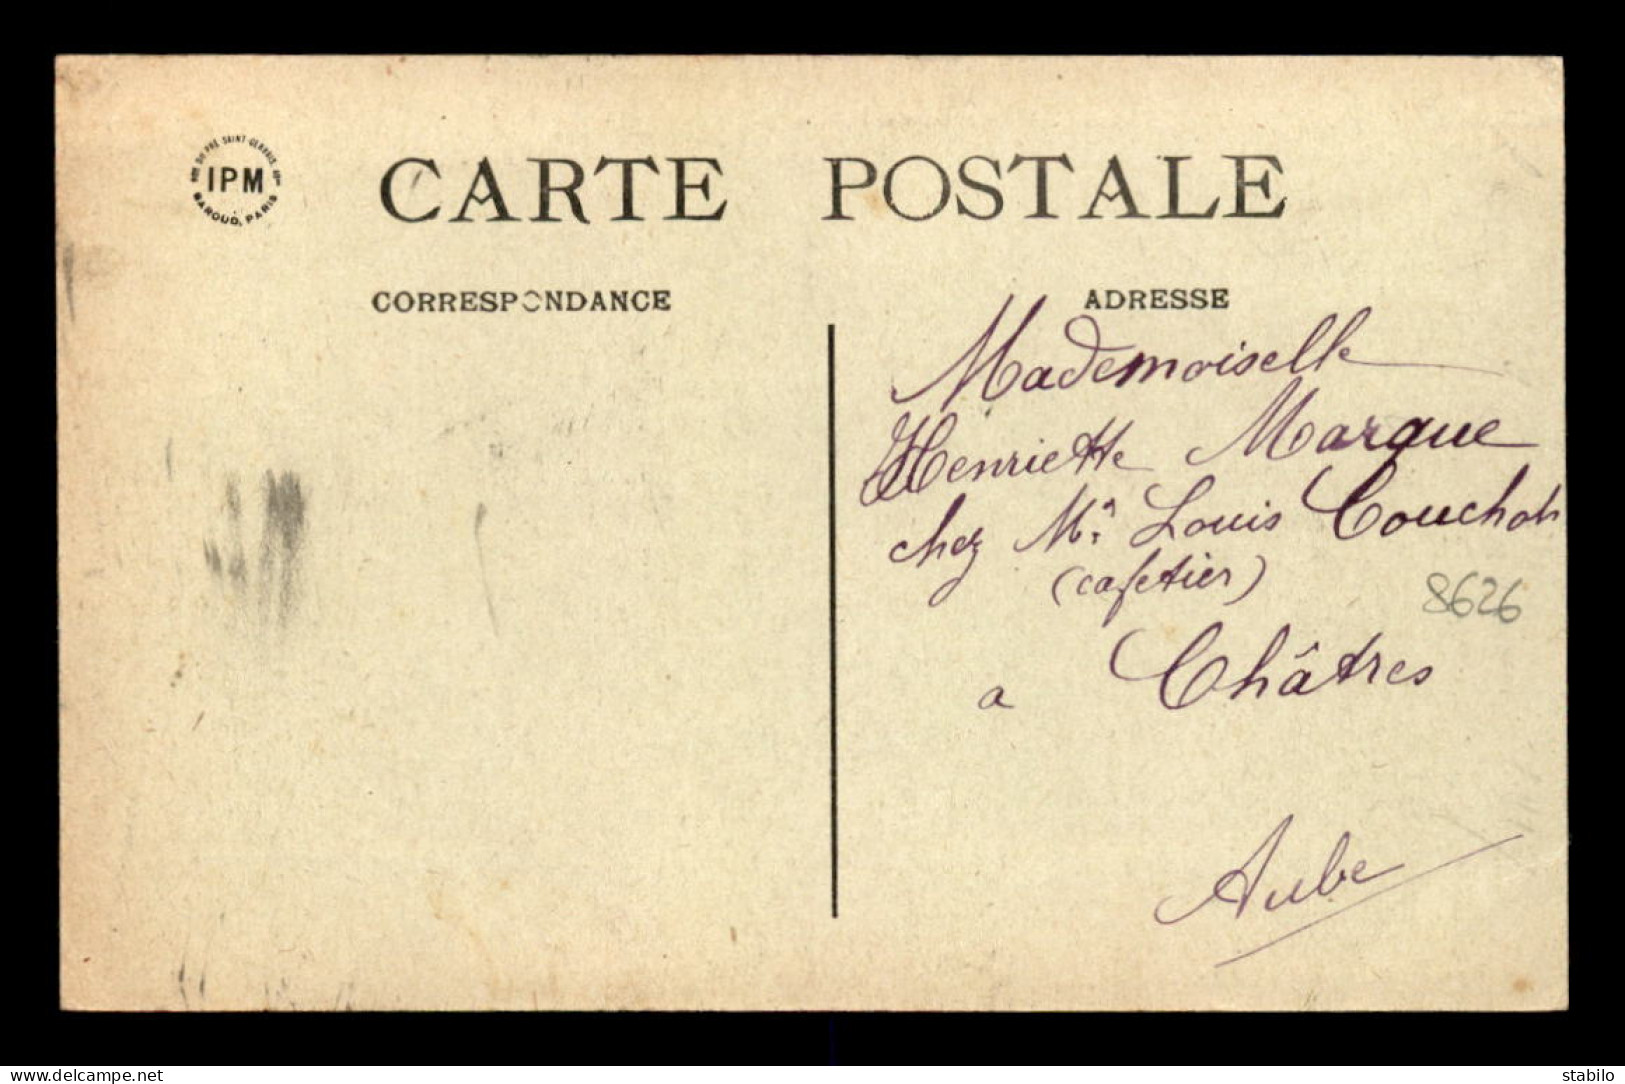 IPM
BAROUD, PARIS
CARTE POSTALE
CORRESPONDANCE
ADRESSE
Mademoiselle
Henriette Marque
chez Mr. Louis Couchot
(cafetier)
8626
a Châtres
Aube
www.delcampe.net
stabilo